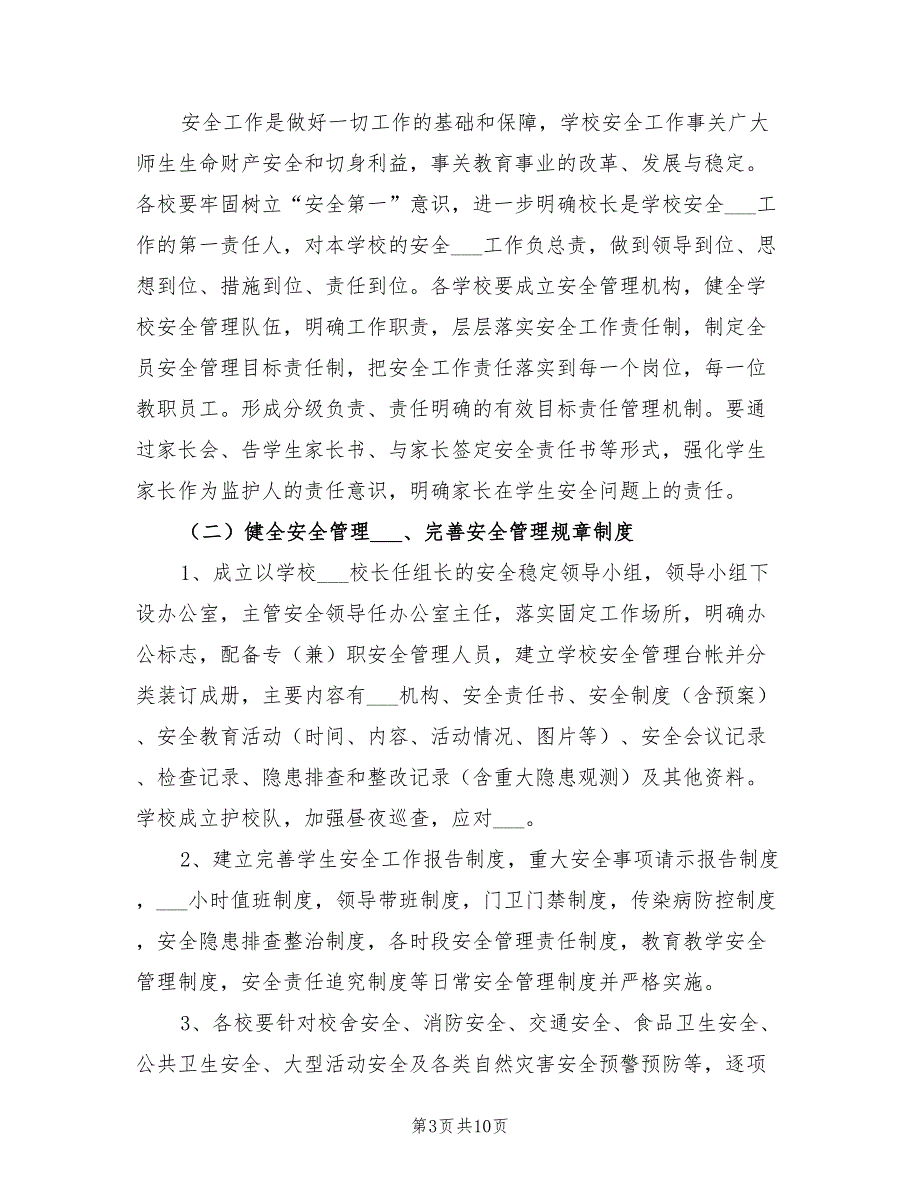 安全工作是做好一切工作的基础和保障，学校安全工作事关广大
师生生命财产安全和切身利益，事关教育事业的改革、发展与稳定。
各校要牢固树立“安全第一”意识，进一步明确校长是学校安全___工
作的第一责任人，对本学校的安全___工作负总责，做到领导到位、思
想到位、措施到位、责任到位。各学校要成立安全管理机构，健全学
校安全管理队伍，明确工作职责，层层落实安全工作责任制，制定全
员安全管理目标责任制，把安全工作责任落实到每一个岗位，每一位
教职员工。形成分级负责、责任明确的有效目标责任管理机制。要通
过家长会、告学生家长书、与家长签定安全责任书等形式，强化学生
家长作为监护人的责任意识，明确家长在学生安全问题上的责任。
（二）健全安全管理___、完善安全管理规章制度
1、成立以学校___校长任组长的安全稳定领导小组，领导小组下
设办公室，主管安全领导任办公室主任，落实固定工作场所，明确办
公标志，配备专（兼）职安全管理人员，建立学校安全管理台帐并分
类装订成册，主要内容有___机构、安全责任书、安全制度（含预案）
、安全教育活动（时间、内容、活动情况、图片等）、安全会议记录
、检查记录、隐患排查和整改记录（含重大隐患观测）及其他资料。
学校成立护校队，加强昼夜巡查，应对___。
2、建立完善学生安全工作报告制度，重大安全事项请示报告制度
，___小时值班制度，领导带班制度，门卫门禁制度，传染病防控制度
，安全隐患排查整治制度，各时段安全管理责任制度，教育教学安全
管理制度，安全责任追究制度等日常安全管理制度并严格实施。
3、各校要针对校舍安全、消防安全、交通安全、食品卫生安全、
公共卫生安全、大型活动安全及各类自然灾害安全预警预防等，逐项
第3页共10页